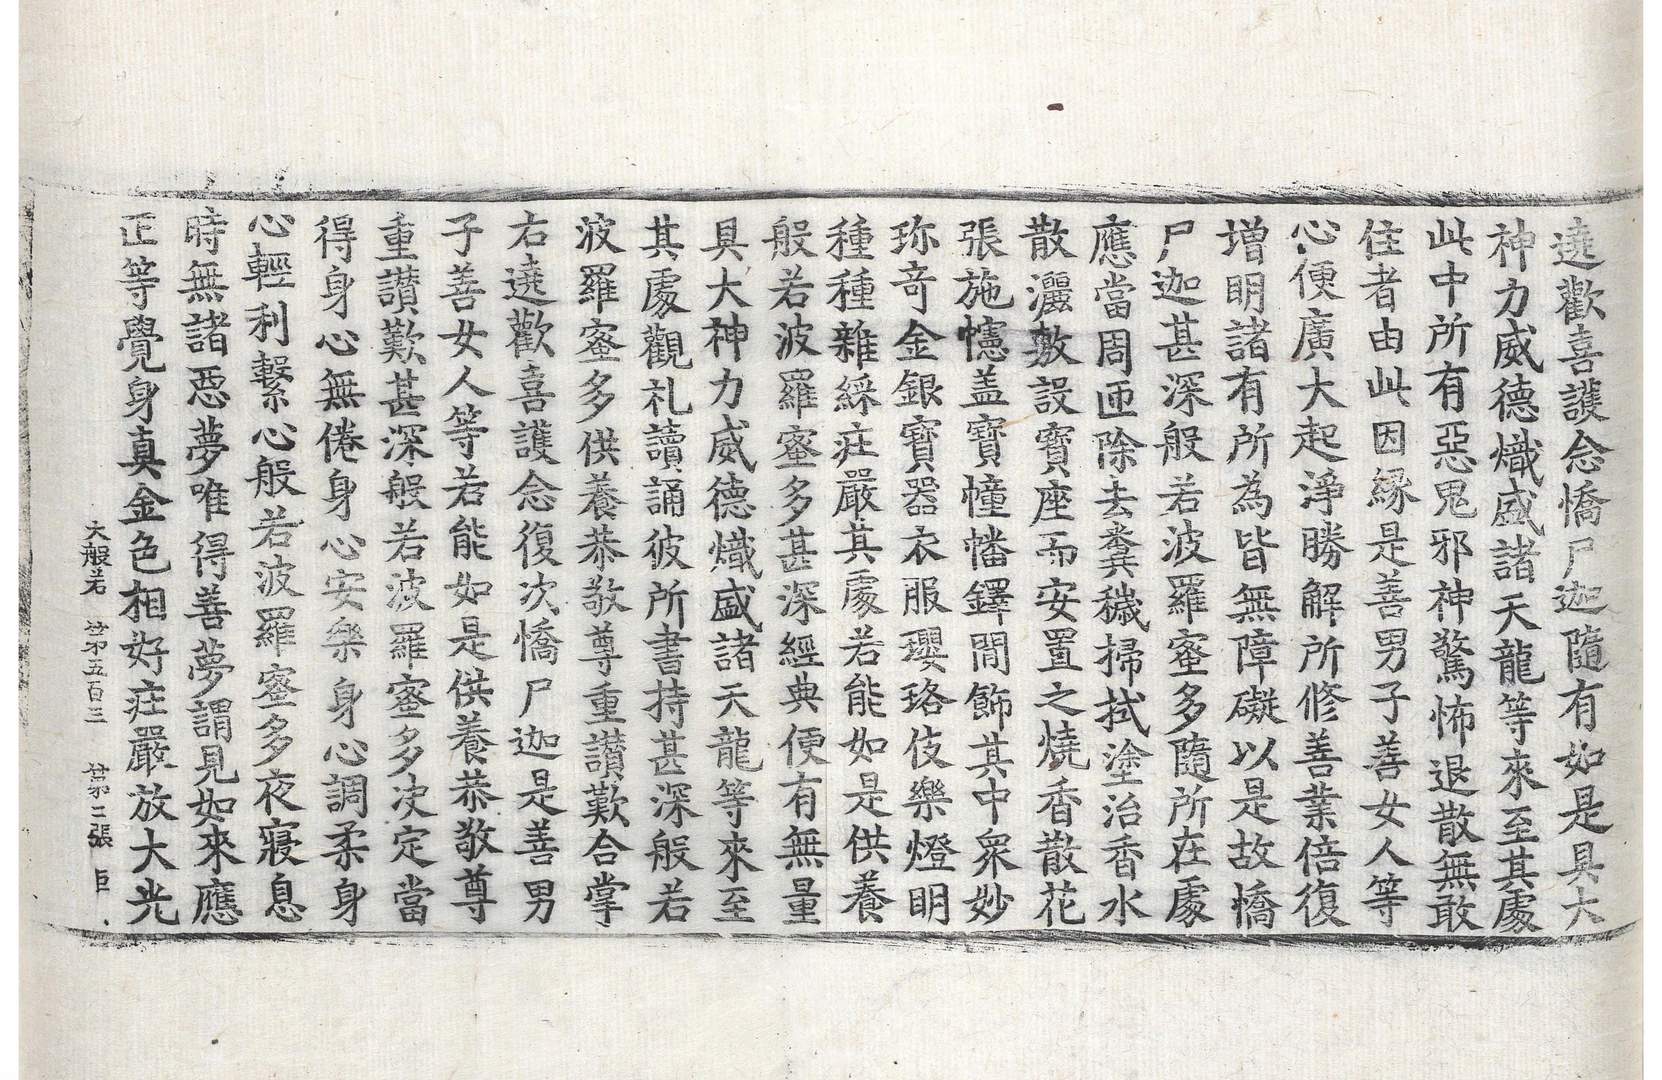 遶歡喜護念憍尸迦隨有如是具大
神力威德熾盛諸天龍等來至其處
此中所有惡鬼邪神驚怖退散無敢
住者由此因縁是善男子善女人等
心便廣大起淨勝解所修善業倍復
增明諸有所為皆無障礙以是故憍
尸迦甚深般若波羅蜜多隨所在處
應當周匝除去糞穢掃拭塗治香水
散灑敷設寶座而安置之燒香散花
張施幰盖寶幢幡鐸間飾其中衆妙
珎奇金銀寶器衣服瓔珞伎樂燈明
種種雜綵庄嚴其處若能如是供養
般若波羅蜜多甚深經典便有無量
具大神力威德熾盛諸天龍等來至
其處觀礼讀誦彼所書持甚深般若
波羅蜜多供養恭敬尊重讚歎合掌
右遶歡喜護念復次憍尸迦是善男
子善女人等若能如是供養恭敬尊
重讚歎甚深般若波羅蜜多决定當
得身心無倦身心安樂身心調柔身
心輕利繫心般若波羅蜜多夜寢息
時無諸惡夢唯得善夢謂見如來應
正等覺身真金色相好庄嚴放大光
大般若　苐五百三　苐二張